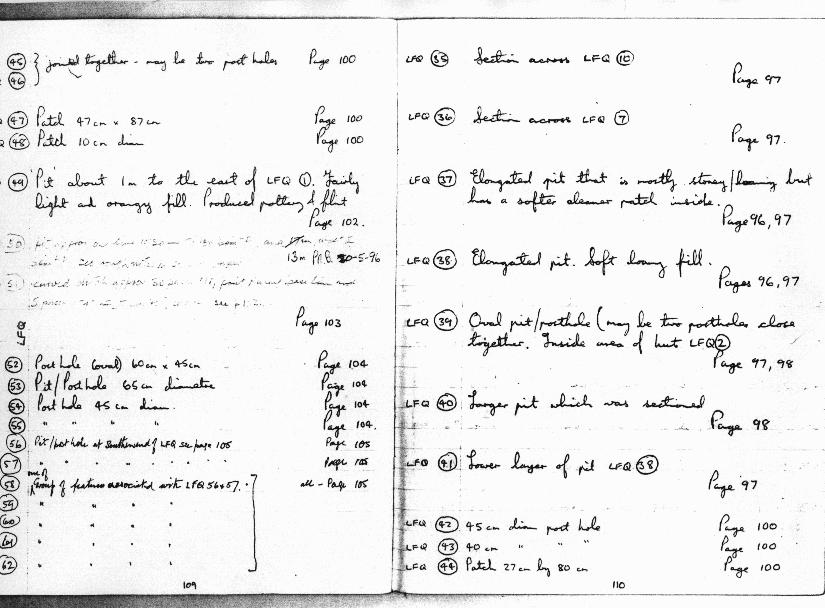 45 } joined together - may be two post holes Page 100
46
47 Patch 47cm x 87cm Page 100
48 Patch 10cm diam Page 100
49 Pit about 1m to the east of LFQ 1. Fairly
light and orangy fill. Produced pottery & flint
Page 102.
50 pit approx
13m 30-5-96
51 curved approx
see
Page 103
LFQ
52 Post hole (oval) 60cm x 45cm Page 104
53 Pit/Post hole 65cm diametre Page 104
54 Post hole 45cm diam. Page 104
55 " " " " Page 104.
56 Pit/post hole at Southern end of LFQ see page 105 Page 105
57 " " " " " " Page 105
one of
58 Group of features associated with LFQ 56+57. all - Page 105
59 " " " "
60 " " " "
61 " " " "
62 " " " "
109
LFQ 35 Section across LFQ 10
Page 97
LFQ 36 Section across LFQ 7
Page 97.
LFQ 37 Elongated pit that is mostly stoney/loamy but
has a softer cleaner patch inside.
Page 96, 97
LFQ 38 Elongated pit. Soft loamy fill.
Pages 96, 97
LFQ 39 Oval pit/posthole (may be two postholes close
together. Inside area of hut LFQ 2
Page 97, 98
LFQ 40 Larger pit which was sectioned
Page 98
LFQ 41 Lower layer of pit LFQ 38
Page 97
LFQ 42 45cm diam post hole Page 100
LFQ 43 40cm " " " Page 100
LFQ 44 Patch 27cm by 80cm Page 100
110